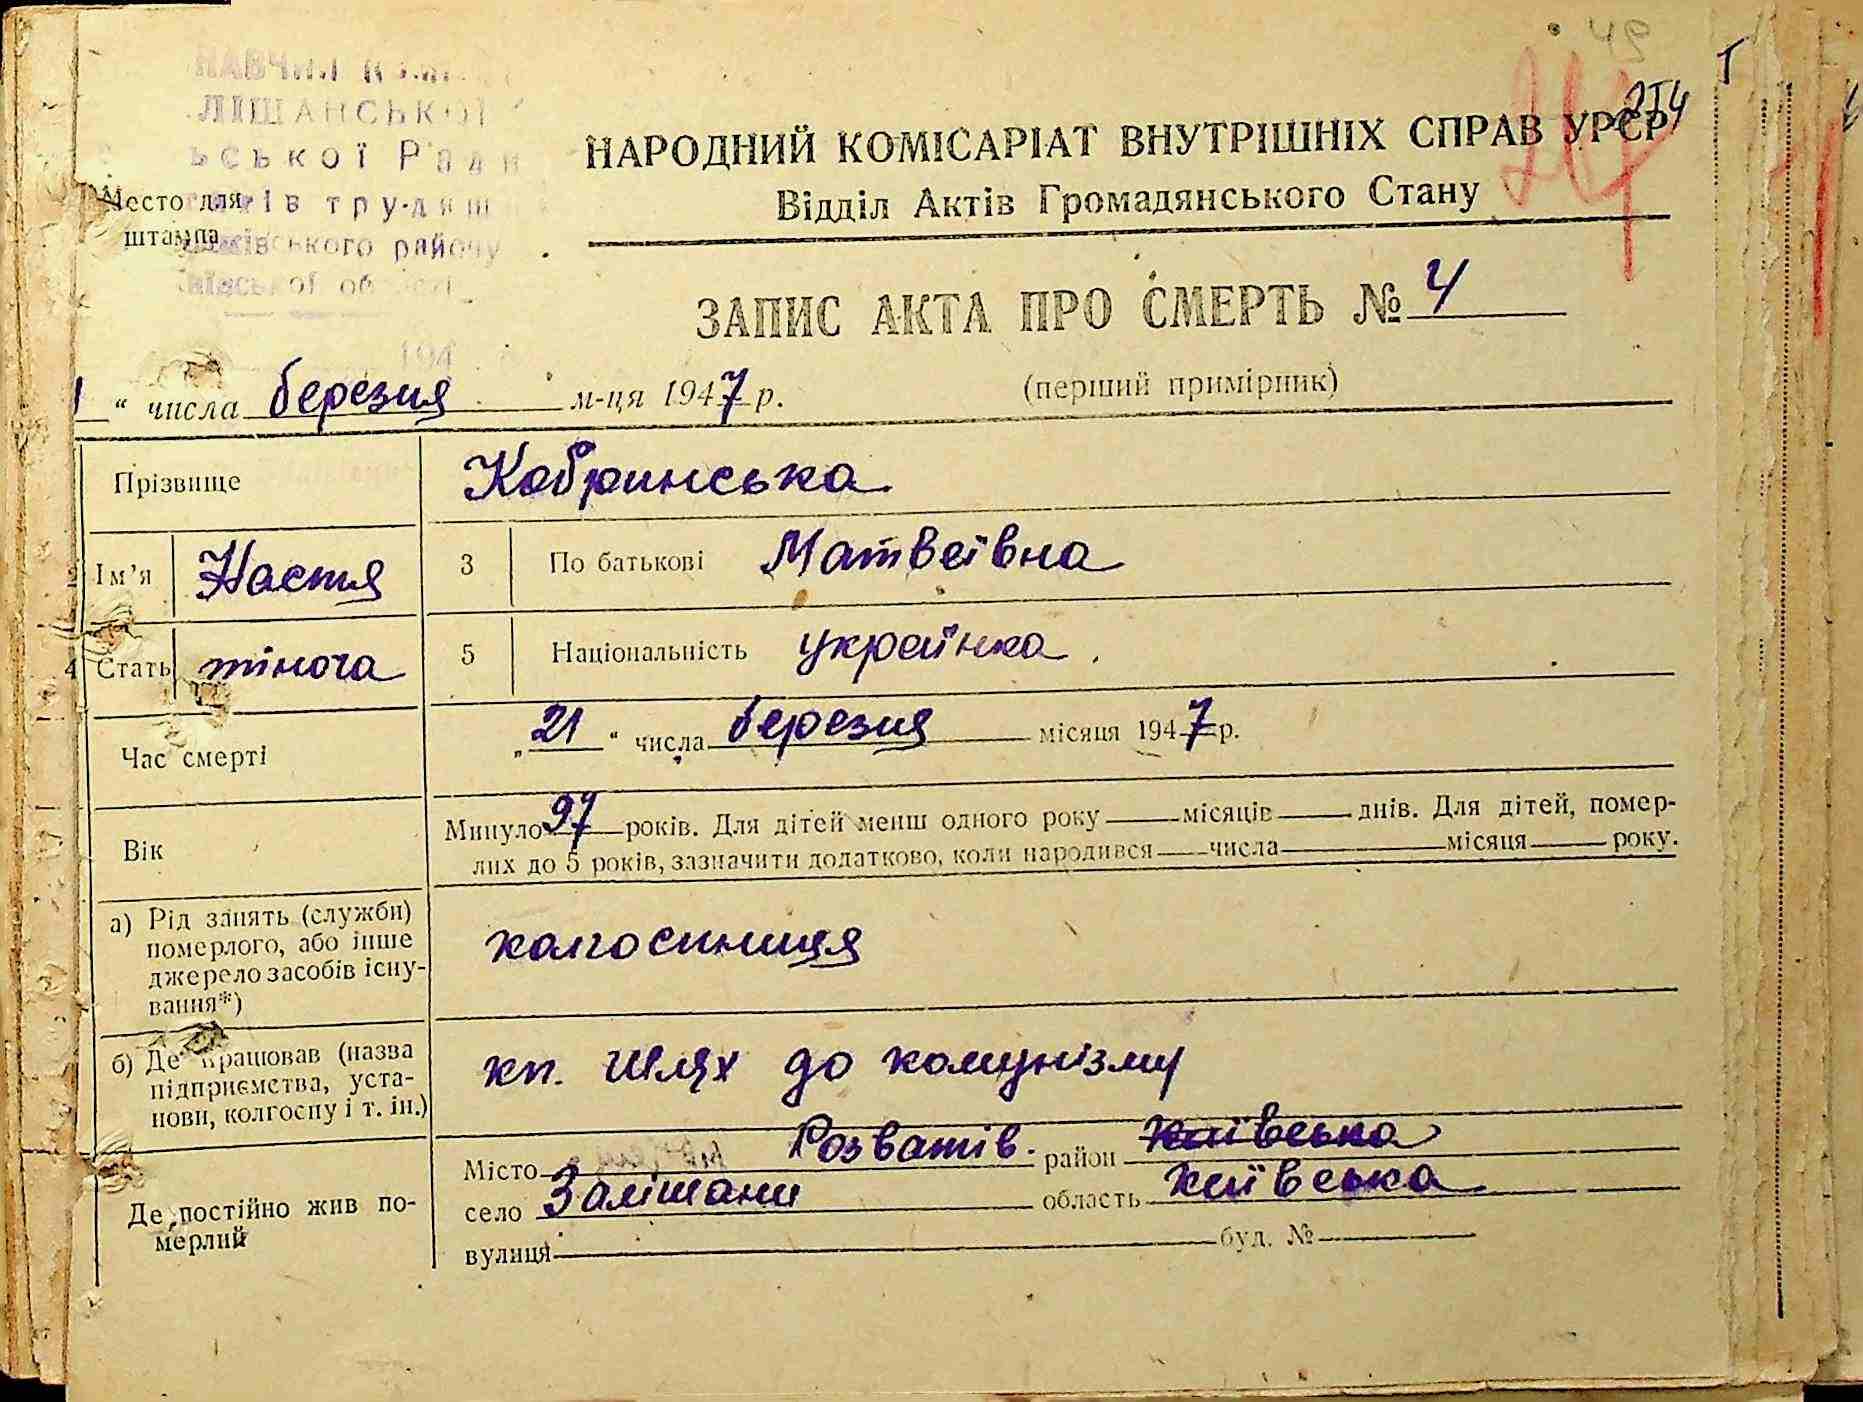 49
254
НАРОДНИЙ КОМІСАРІАТ ВНУТРІШНІХ СПРАВ УРСР
Відділ Актів Громадянського Стану
ЛІШАНСЬКОЇ
ЬСЬКОЇ Рад
Место для
штампа
району
ЗАПИС АКТА ПРО СМЕРТЬ № 4
1 “ числа березня м-ця 1947 р. (перший примірник)
Прізвище Кобринська
2 Ім'я Настя 3 По батькові Матвеївна
4 Стать жіноча 5 Національність українка.
Час смерті „21“ числа березня місяця 1947 р.
Вік Минуло 97 років. Для дітей менш одного року місяців днів. Для дітей, помер-
лих до 5 років, зазначити додатково, коли народився числа місяця року.
а) Рід занять (служби) померлого, або інше джерело засобів існу-вання*) колгоспниця
б) Де працював (назва підприємства, уста-нови, колгоспу і т. ін.) кп. Шлях до комунізму
Де постійно жив по-мерлий
Місто Розважів. район Київська
село Залішани область Київська
вулиця буд. №